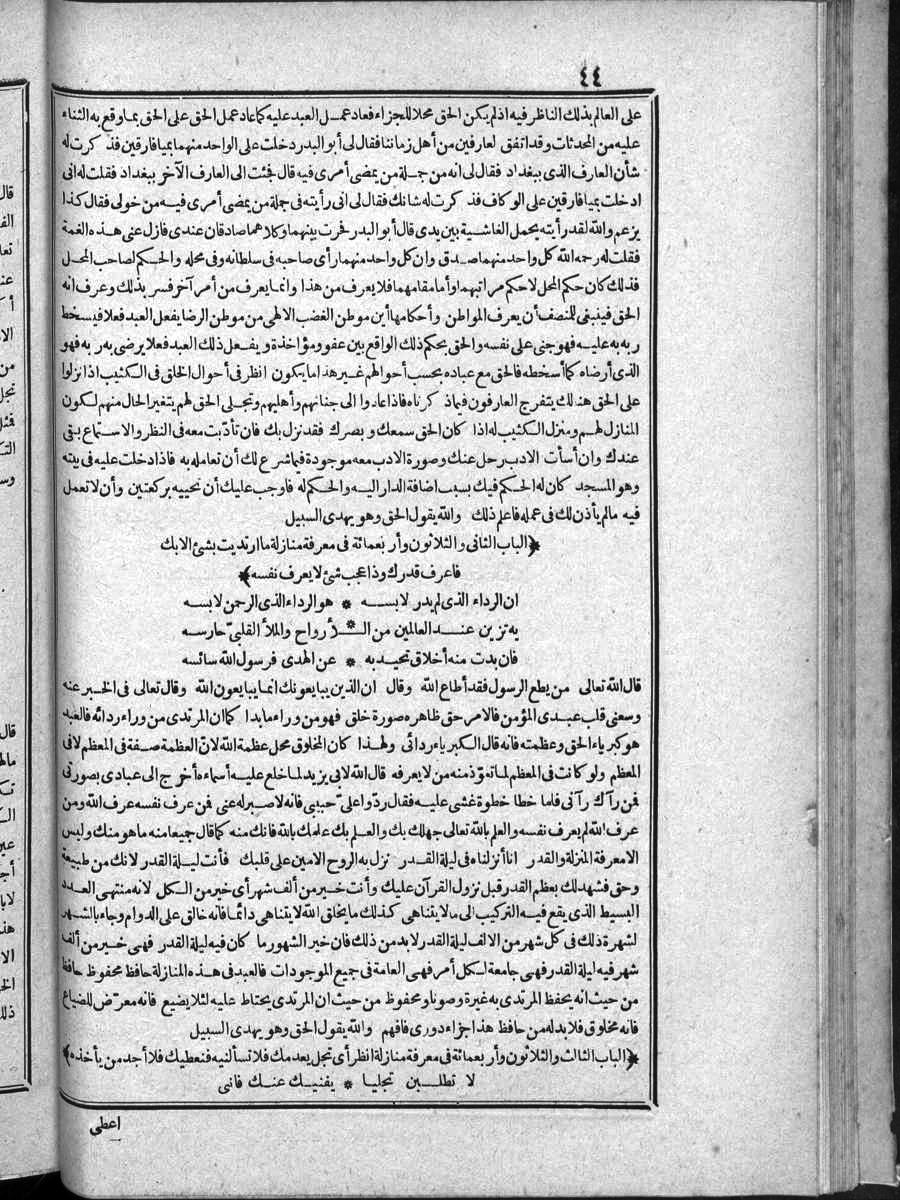 ٤٤
على العالم بذلك الناظر فيه اذ لم يكن الحق محلا للجزاء فعاد عمل العبد عليه كما عاد عمل الحق على الحق بما وقع به الثناء
عليه من المحدثات وقد اتفق لعارفين من أهل زماننا فقال لى أبو البدر دخلت على الواحد منهما بميافارقين فذ كرت له
شأن العارف الذى ببغداد فقال لى انه من جملة من يمضى أمرى فيه قال فجئت الى العارف الآخر ببغداد فقلت له انى
ادخلت بميافارقين على الوكاف فذ كرت له شانك فقال لى انى رأيته فى جملة من يمضى أمرى فيه من خولى فقال كذا
يزعم والله لقد رأيته يحمل الغاشية بين يدى قال أبو البدر فحرت بينهما وكلاهما صادقان عندى فازل عنى هذه الغمة
فقلت له رحمه الله كل واحد منهما صدق وان كل واحد منهما رأى صاحبه فى سلطانه وفى محله والحكم لصاحب المحل
فذلك كان حكم المحل لا حكم مراتبهما وأما مقامهما فلا يعرف من هذا وانما يعرف من أمر آخر فسر بذلك وعرف انه
الحق فينبغى للمنصف أن يعرف المواطن وأحكامها أين موطن الغضب الالهى من موطن الرضا يفعل العبد فعلا فيسخط
ربه به عليه فهو جنى على نفسه والحق بحكم ذلك الواقع بين عفو ومؤاخذة ويفعل ذلك العبد فعلا يرضى به ربه فهو
الذى أرضاه كما أسخطه فالحق مع عباده بحسب أحوالهم غير هذا ما يكون انظر فى أحوال الخلق فى الكثيب اذا نزلوا
على الحق هنالك يتفرج العارفون فيما ذ كرناه فاذا عادوا الى جنانهم وأهليهم وتجلى الحق لهم يتغير الحال منهم لكون
المنازل لهم ومنزل الكثيب له اذا كان الحق سمعك وبصرك فقد نزل بك فان تأدّبت معه فى النظر والاستماع بقى
عندك وان أسأت الادب رحل عنك وصورة الادب معه موجودة فيما شرع لك أن تعامله به فاذا دخلت عليه فى بيته
وهو المسجد كان له الحكم فيك بسبب اضافة الدار اليه والحكم له فاوجب عليك أن تحييه بركعتين وأن لا تعمل
فيه مالم يأذن لك فى عمله فاعلم ذلك والله يقول الحق وهو يهدى السبيل
﴿الباب الثانى والثلاثون وأربعمائة فى معرفة منازلة ما ارتديت بشئ الا بك
فاعرف قدرك وذا عجب شئ لا يعرف نفسه﴾
ان الرداء الذى لم يدر لابسه * هو الرداء الذى الرحمن لابسه
به تزين عند العالمين من الـ * أرواح والملأ القلبىّ حارسه
فان بدت منه أخلاق تحيد به * عن الهدى فرسول الله سائسه
قال الله تعالى من يطع الرسول فقد أطاع الله وقال ان الذين يبايعونك انما يبايعون الله وقال تعالى فى الخبر عنه
وسعنى قلب عبدى المؤمن فالامر حق ظاهره صورة خلق فهو من وراء ما بدا كما ان المرتدى من وراء ردائه فالعبد
هو كبرياء الحق وعظمته فانه قال الكبرياء ردائى ولهذا كان المخلوق محل عظمة الله لانّ العظمة صفة فى المعظم لا فى
المعظم ولو كانت فى المعظم لما تعوّذ منه من لا يعرفه قال الله لابى يزيد لما خلع عليه أسماءه أخرج الى عبادى بصورتى
فمن رآك رآنى فاما خطا خطوة غشى عليه فقال ردّوا علىّ حبيبى فانه لا صبر له عنى فمن عرف نفسه عرف الله ومن
عرف الله لم يعرف نفسه والعلم بالله تعالى جهلك بك والعلم بك علمك بالله فانك منه كما قال جميعا منه ما هو منك وليس
الا معرفة المنزلة والقدر انا أنزلناه فى ليلة القدر نزل به الروح الامين على قلبك فأنت ليلة القدر لانك من طبيعة
وحق فشهد لك بعظم القدر قبل نزول القرآن عليك وأنت خير من ألف شهر أى خير من الكل لانه منتهى العدد
البسيط الذى يقع فيه التركيب الى ما لا يتناهى كذلك ما يخلق الله لا يتناهى دائما فانه خالق على الدوام وجاء بالشهر
لشهرة ذلك فى كل شهر من الالف ليلة القدر لابد من ذلك فان خير الشهور ما كان فيه ليلة القدر فهى خير من ألف
شهر فيه ليلة القدر فهى جامعة لكل أمر فهى العامة فى جميع الموجودات فالعبد فى هذه المنازلة حافظ محفوظ حافظ
من حيث انه يحفظ المرتدى به غيرة وصونا ومحفوظ من حيث ان المرتدى يحتاط عليه لئلا يضيع فانه معرّض للضياع
فانه مخلوق فلا بد له من حافظ هذا جزاء دورى فافهم والله يقول الحق وهو يهدى السبيل
﴿الباب الثالث والثلاثون وأربعمائة فى معرفة منازلة انظر أى تجل يعدمك فلا تسألنيه فنعطيك فلا أجد من يأخذه﴾
لا تطلبن تجليا * يفنيك عنك فانى
اعطى